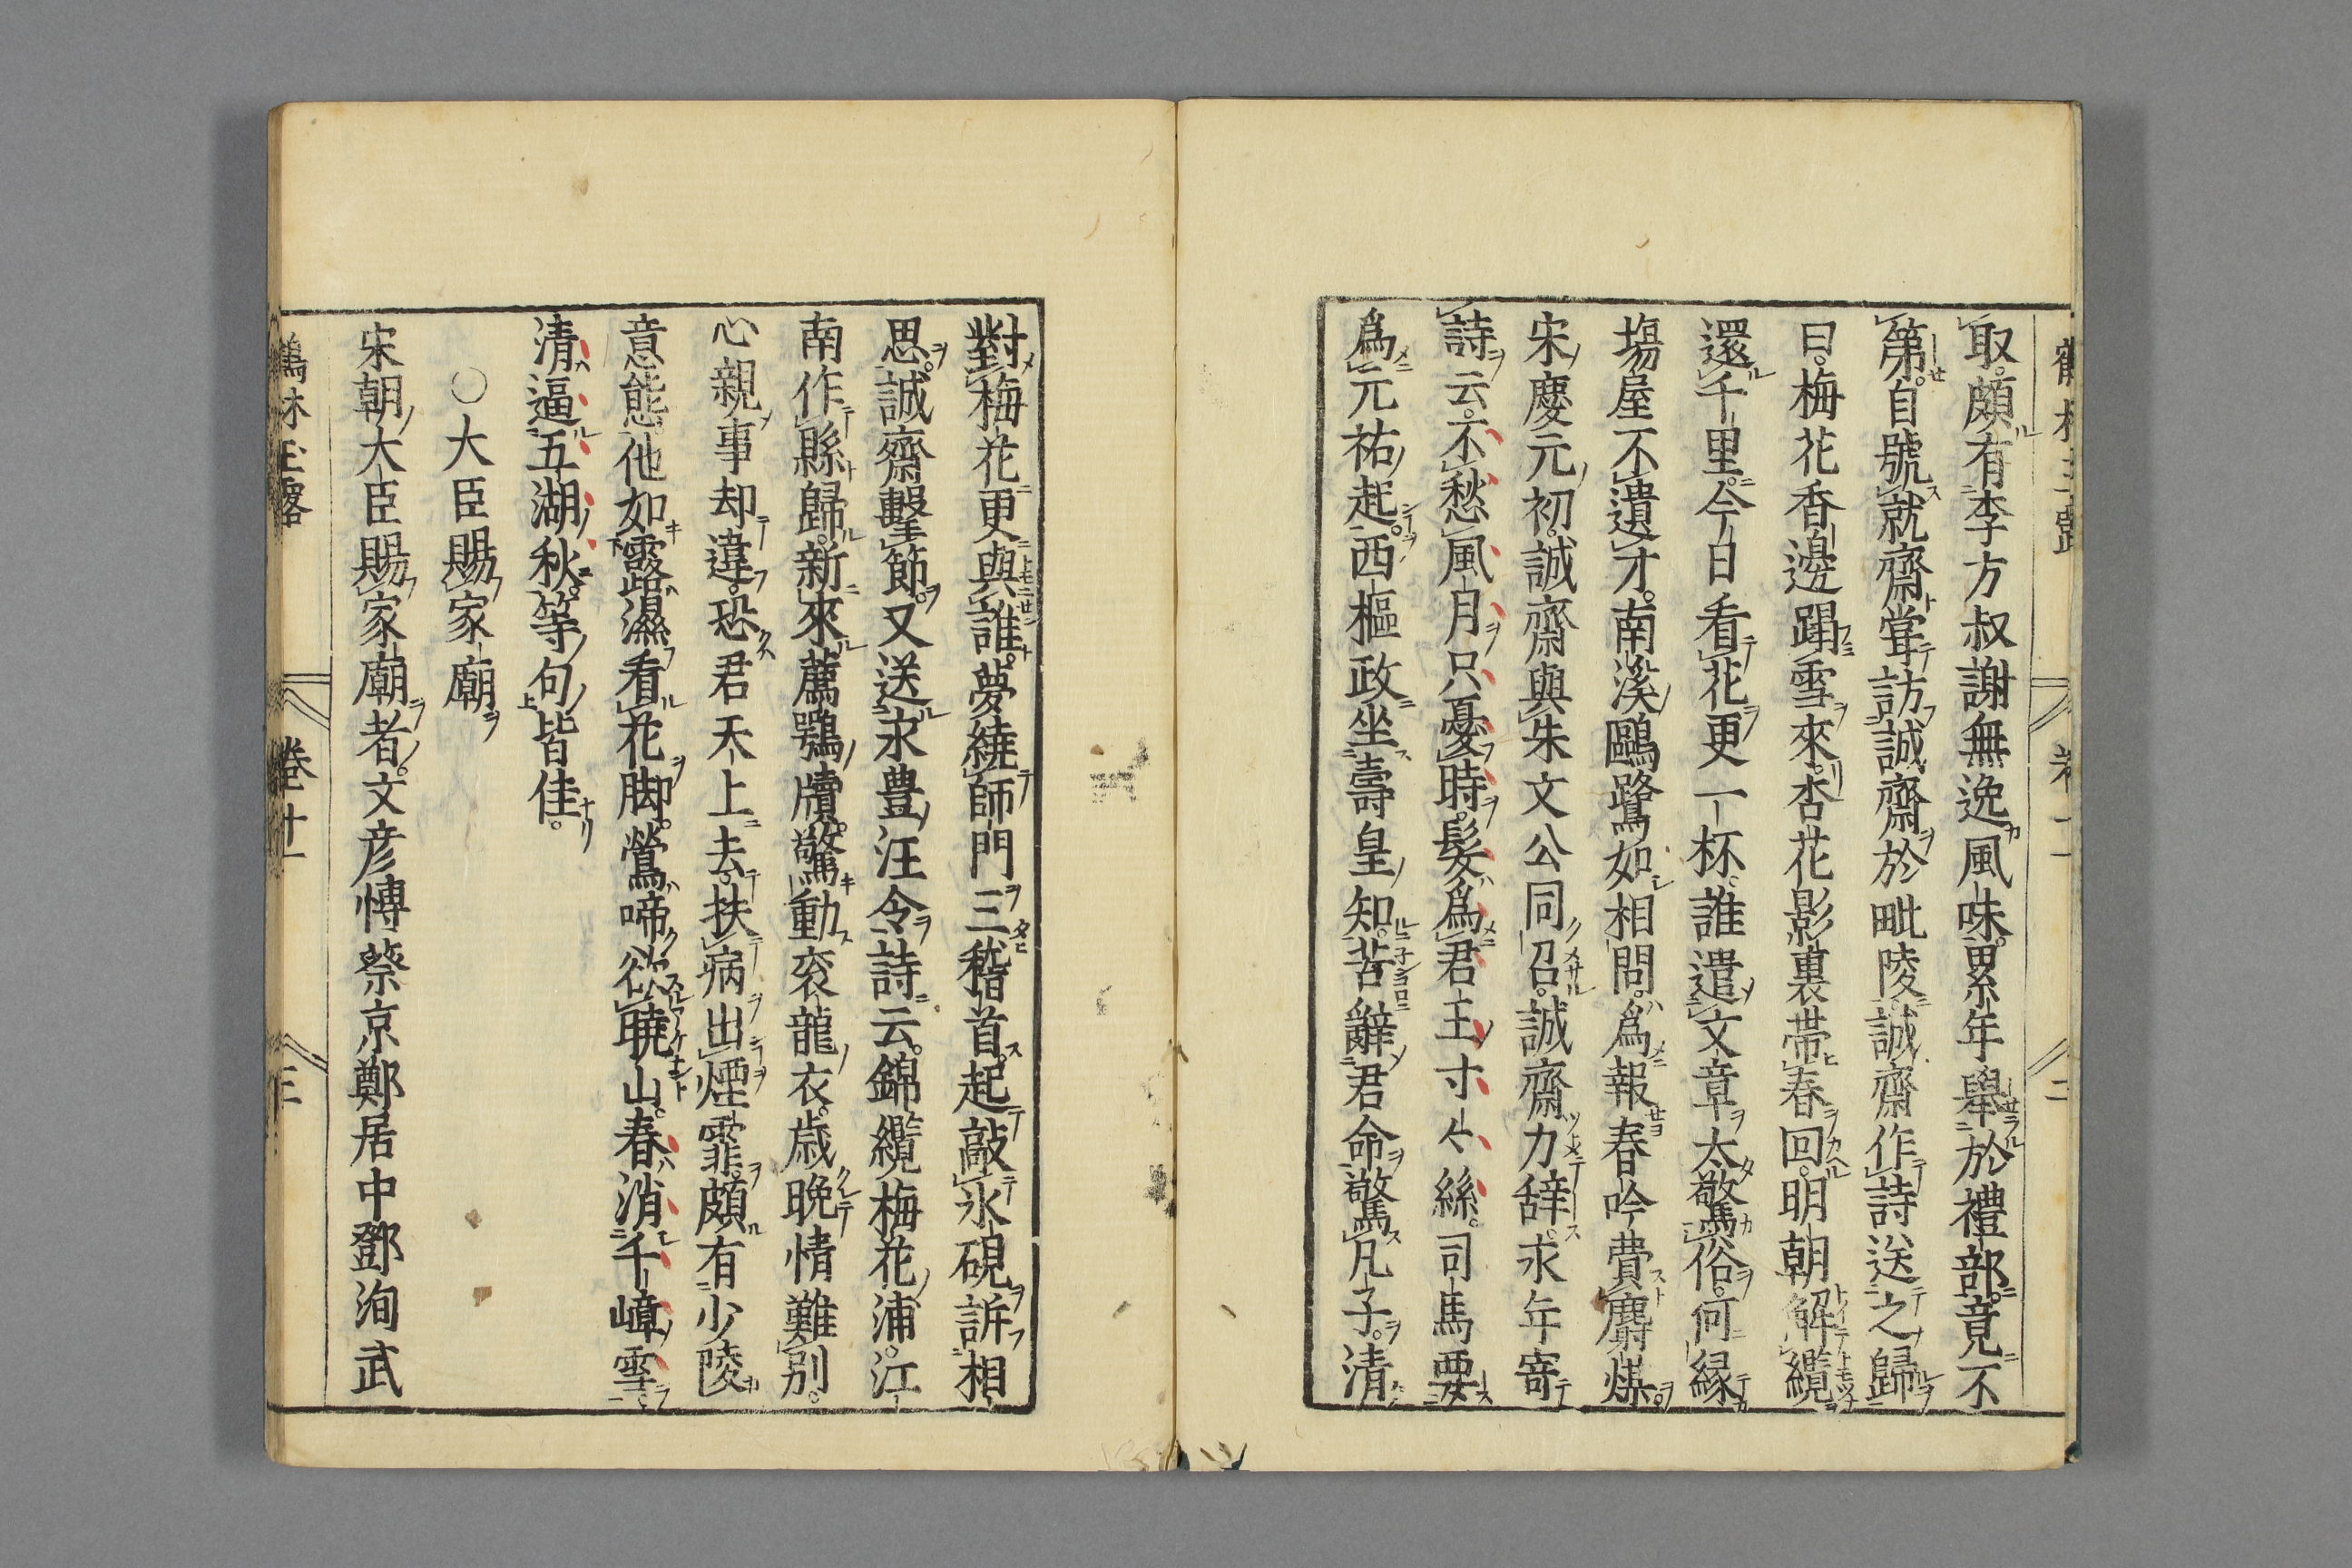 取。頗有李方叔謝無逸風味。累年擧於禮部。竟不
第。自號就齋。甞訪誠齋於毗陵。誠齋作詩送之歸
曰。梅花香邊踢雪來。杏花影裏帶春回。明朝解纜
還千里。今日看花更一杯。誰遣文章太驚俗。何縁
塲屋不遺才。南溪鷗鷺如相問。爲報春吟費麝煤。
宋慶元初。誠齋與朱文公同召。誠齋力辞。求年寄
詩云。不愁風月只憂時。髮爲君王寸〻絲。司馬要
爲元祐起。西樞政坐壽皇知。苦辭君命驚凡子。清
對梅花更與誰。夢繞師門三稽首。起敲氷硯訴相
思。誠齋擊節。又送永豊汪令詩云。錦纜梅花浦。江
南作縣歸。新來薦鶚牘。驚動衮龍衣。歳晩情難別。
心親事却違。恐君天上去。扶病出煙霏。頗有少陵
意態。他如露濕看花脚。鶯啼欲曉山。春消千嶂雪。
清逼五湖秋。等句皆佳。
○大臣賜家廟
宋朝大臣賜家廟者。文彦愽蔡京鄭居中鄧洵武
卷十一